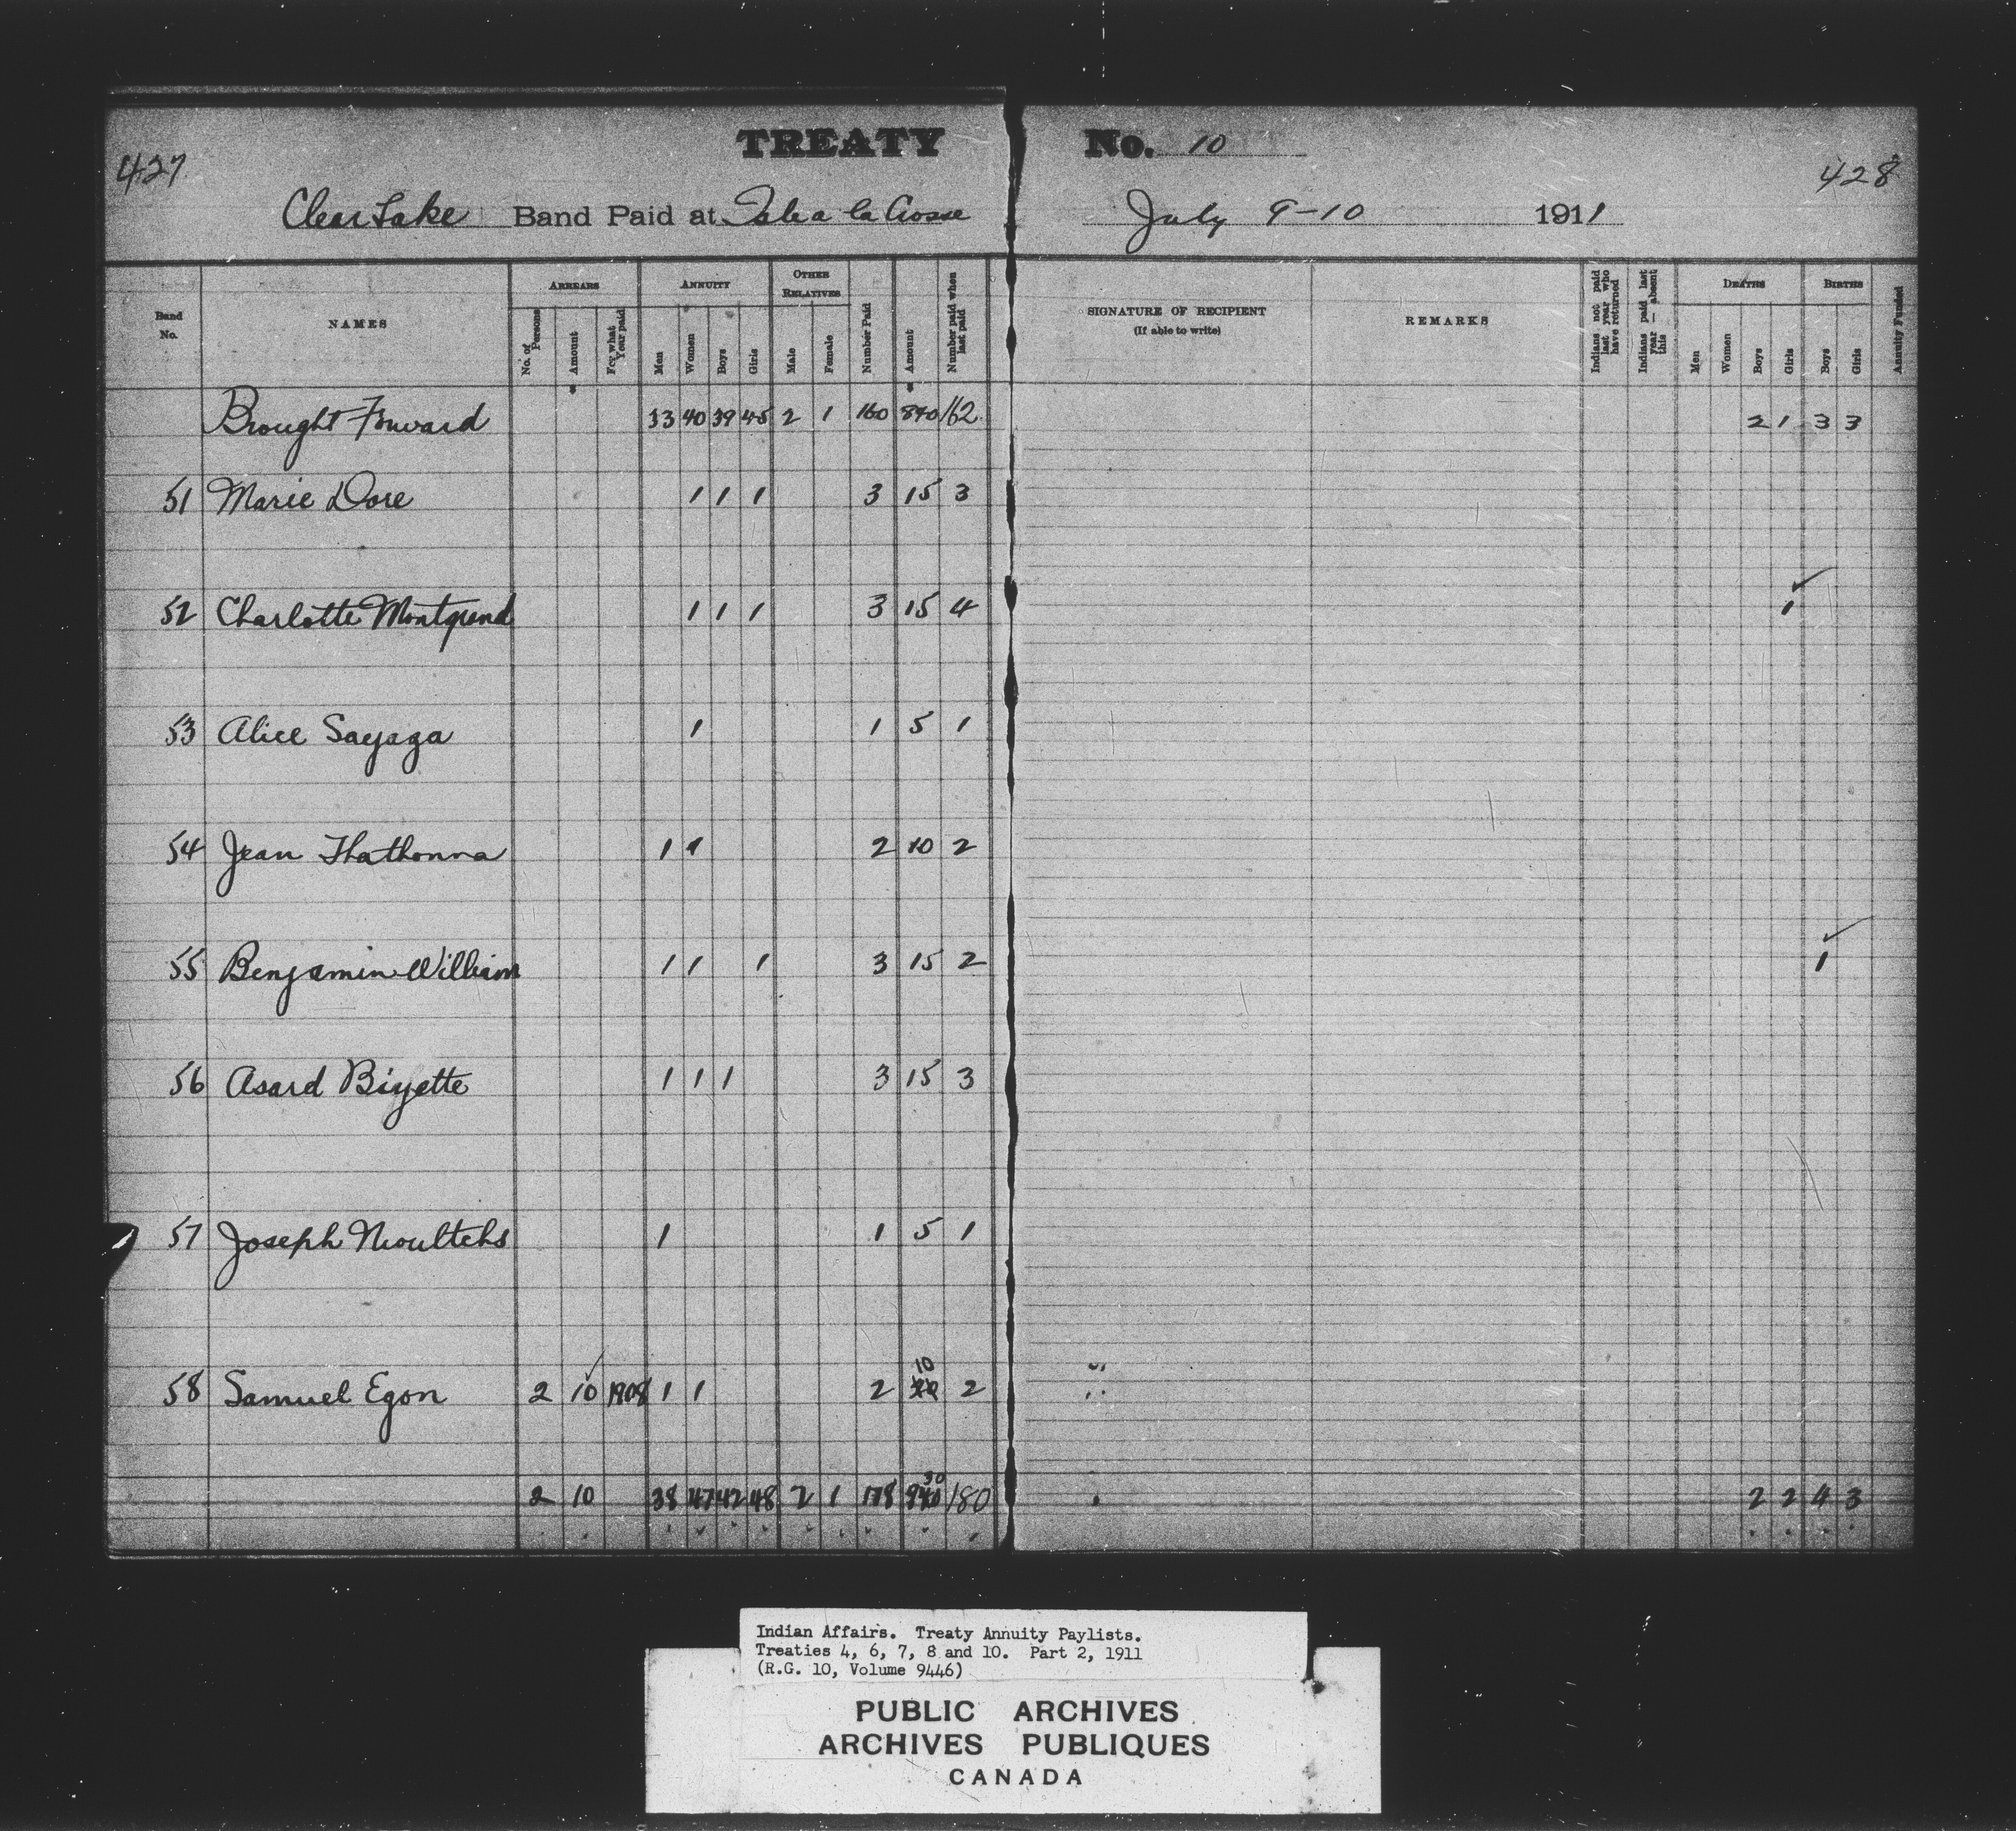 TREATY No. 10
427 428
Clear Lake Band Paid at Isle a la Crosse July 9-10 1911
Band No. NAMES ARREARS ANNUITY OTHER RELATIVES Number Paid Amount Number paid when last paid SIGNATURE OF RECIPIENT (If able to write) REMARKS Indians not paid last year who have returned Indians paid last year — absent this DEATHS BIRTHS Annuity Funded
No. of Persons Amount For what Year paid Men Women Boys Girls Male Female Men Women Boys Girls Boys Girls
Brought Forward 33 40 39 45 2 1 160 162 2 1 3 3
51 Marie Dore 1 1 1 3 15 3
52 Charlotte Montgrand 1 1 1 3 15 4 1
53 Alice Sayaza 1 1 5 1
54 Jean Thathonna 1 1 2 10 2
55 Benjamin William 1 1 1 3 15 2 1
56 Asard Biyette 1 1 1 3 15 3
57 Joseph Neoultchs 1 1 5 1
58 Samuel Egon 2 10 1908 1 1 2 10 2
2 10 38 47 42 48 2 1 178 30 180 2 2 4 3
Indian Affairs. Treaty Annuity Paylists.
Treaties 4, 6, 7, 8 and 10. Part 2, 1911
(R.G. 10, Volume 9446)
PUBLIC ARCHIVES
ARCHIVES PUBLIQUES
CANADA